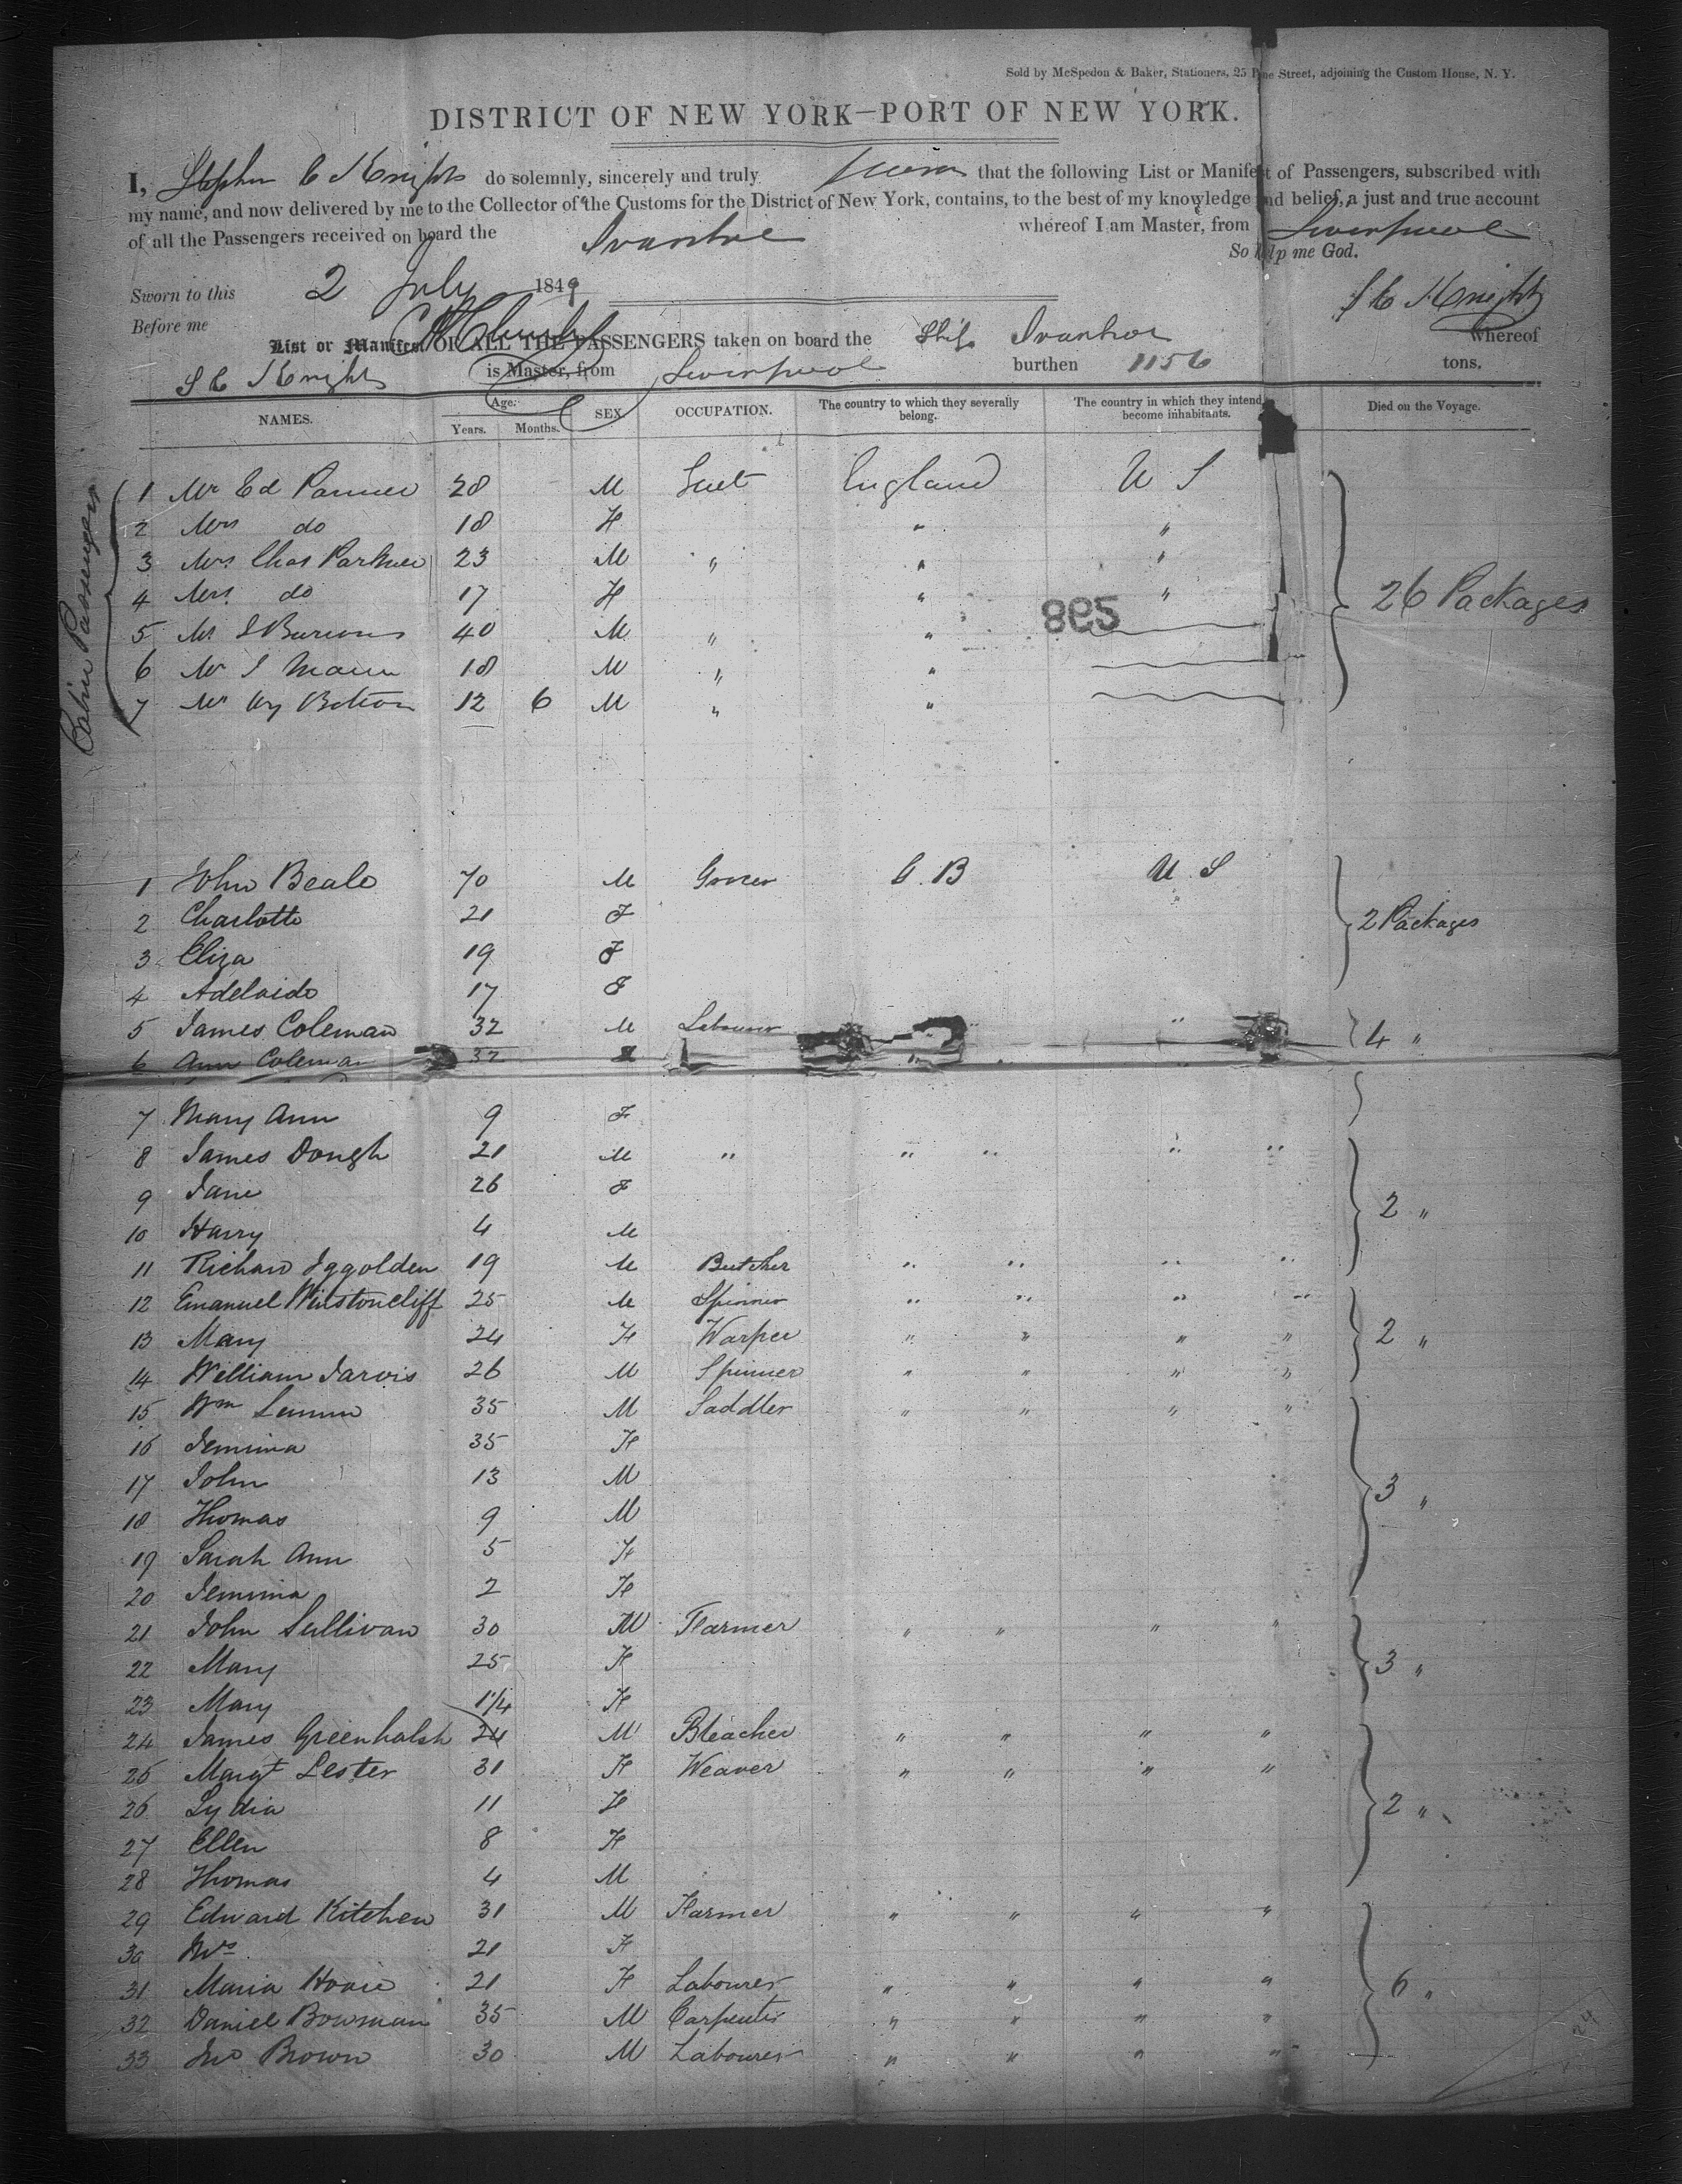 Sold by McSpedon & Baker, Stationers, 25 Pine Street, adjoining the Custom House, N. Y.
DISTRICT OF NEW YORK—PORT OF NEW YORK.
I, Stephen C Knight do solemnly, sincerely and truly swear that the following List or Manifest of Passengers, subscribed with
my name, and now delivered by me to the Collector of the Customs for the District of New York, contains, to the best of my knowledge and belief, a just and true account
of all the Passengers received on board the Ivanhoe whereof I am Master, from Liverpool
So help me God.
Sworn to this 2 July 1849
S C Knight
Before me
List or Manifest OF ALL THE PASSENGERS taken on board the Ship Ivanhoe whereof
S C Knight is Master, from Liverpool burthen 1156 tons.
NAMES. Age. Years. Months. SEX OCCUPATION. The country to which they severally belong. The country in which they intend to become inhabitants. Died on the Voyage.
Cabin Passengers
1 Mr Ed 28 M England U S
2 Mrs do 18 F " "
3 Mrs Chas 23 M " " "
4 Mrs do 17 F " "
26 Packages
598
5 Mr 40 M " "
6 Mr J 18 M " "
7 Mr Hy 12 6 M " "
1 John Beale 70 M Grocer G. B U. S
2 Charlotte 21 F
2 Packages
3 Eliza 19 F
4 Adelaide 17 F
5 James Coleman 32 M Labourer " 4 "
6 Ann Coleman 32
7 Mary Ann 9 F
8 James Dongh 21 M " " " " "
9 Jane 26 F
2 "
10 Harry 4 M
11 Richard Iggolden 19 M Butcher " " " "
12 Emanuel Winstoncliff 25 M Spinner " " " "
13 Mary 24 F Warper " " " " 2 "
14 William Jarvis 26 M Spinner " " " "
15 Wm 35 M Saddler " " " "
16 Jemima 35 F
17 John 13 M
3 "
18 Thomas 9 M
19 Sarah Ann 5 F
20 Jemima 2 F
21 John Sullivan 30 M Farmer " " " "
22 Mary 25 F 3 "
23 Mary 1 1/4 F
24 James Greenhalsh 24 M Bleacher " " " "
25 Margt Lester 31 F Weaver " " " "
26 Lydia 11 F 2 "
27 Ellen 8 F
28 Thomas 4 M
29 Edward Kitchen 31 M Farmer " " " "
30 Mrs 21 F
31 Maria 21 F Labourer " " " " 6 "
32 Daniel Bowman 35 M Carpenter " " " "
33 Jno Brown 30 M Labourer " " " "